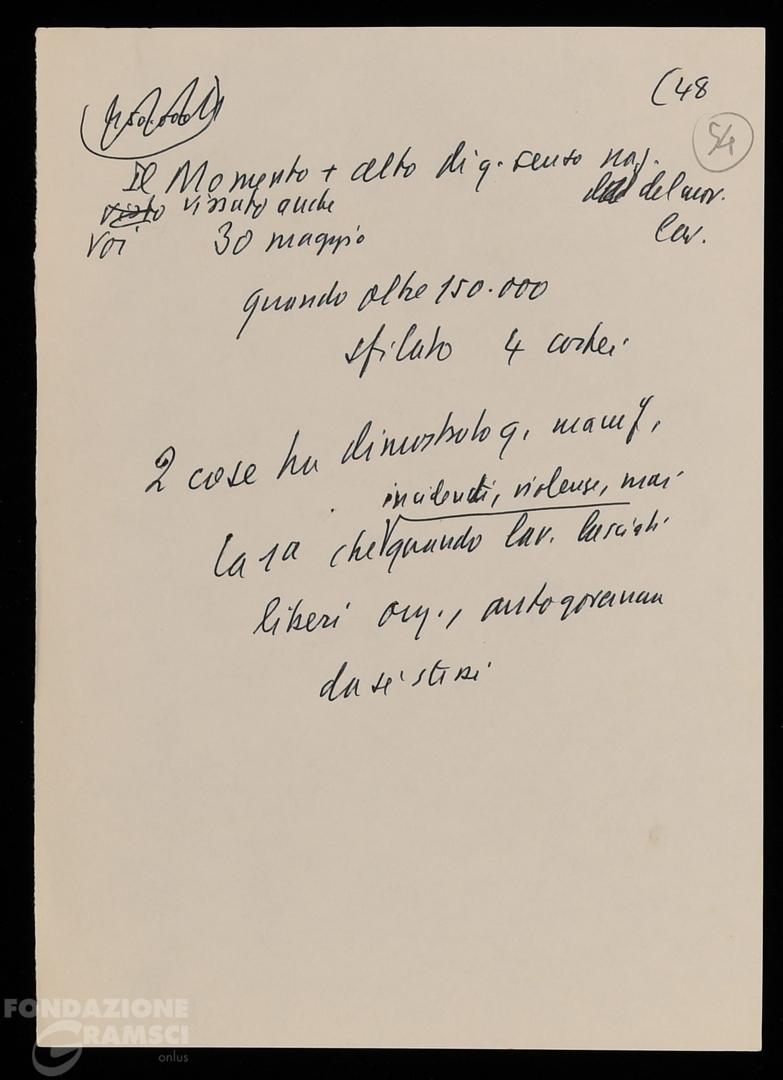 (48
54
150.000
Il Momento + alto di q. senso naz.
visto vissuto anche del mov.
Voi 30 maggio lav.
quando oltre 150.000
sfilato 4 cortei
2 cose ha dimostrato q. manif.
incidenti, violenze, mai
la 1a che quando lav. lasciati
liberi org., autogovernan
da sé stessi
FONDAZIONE
GRAMSCI
onlus